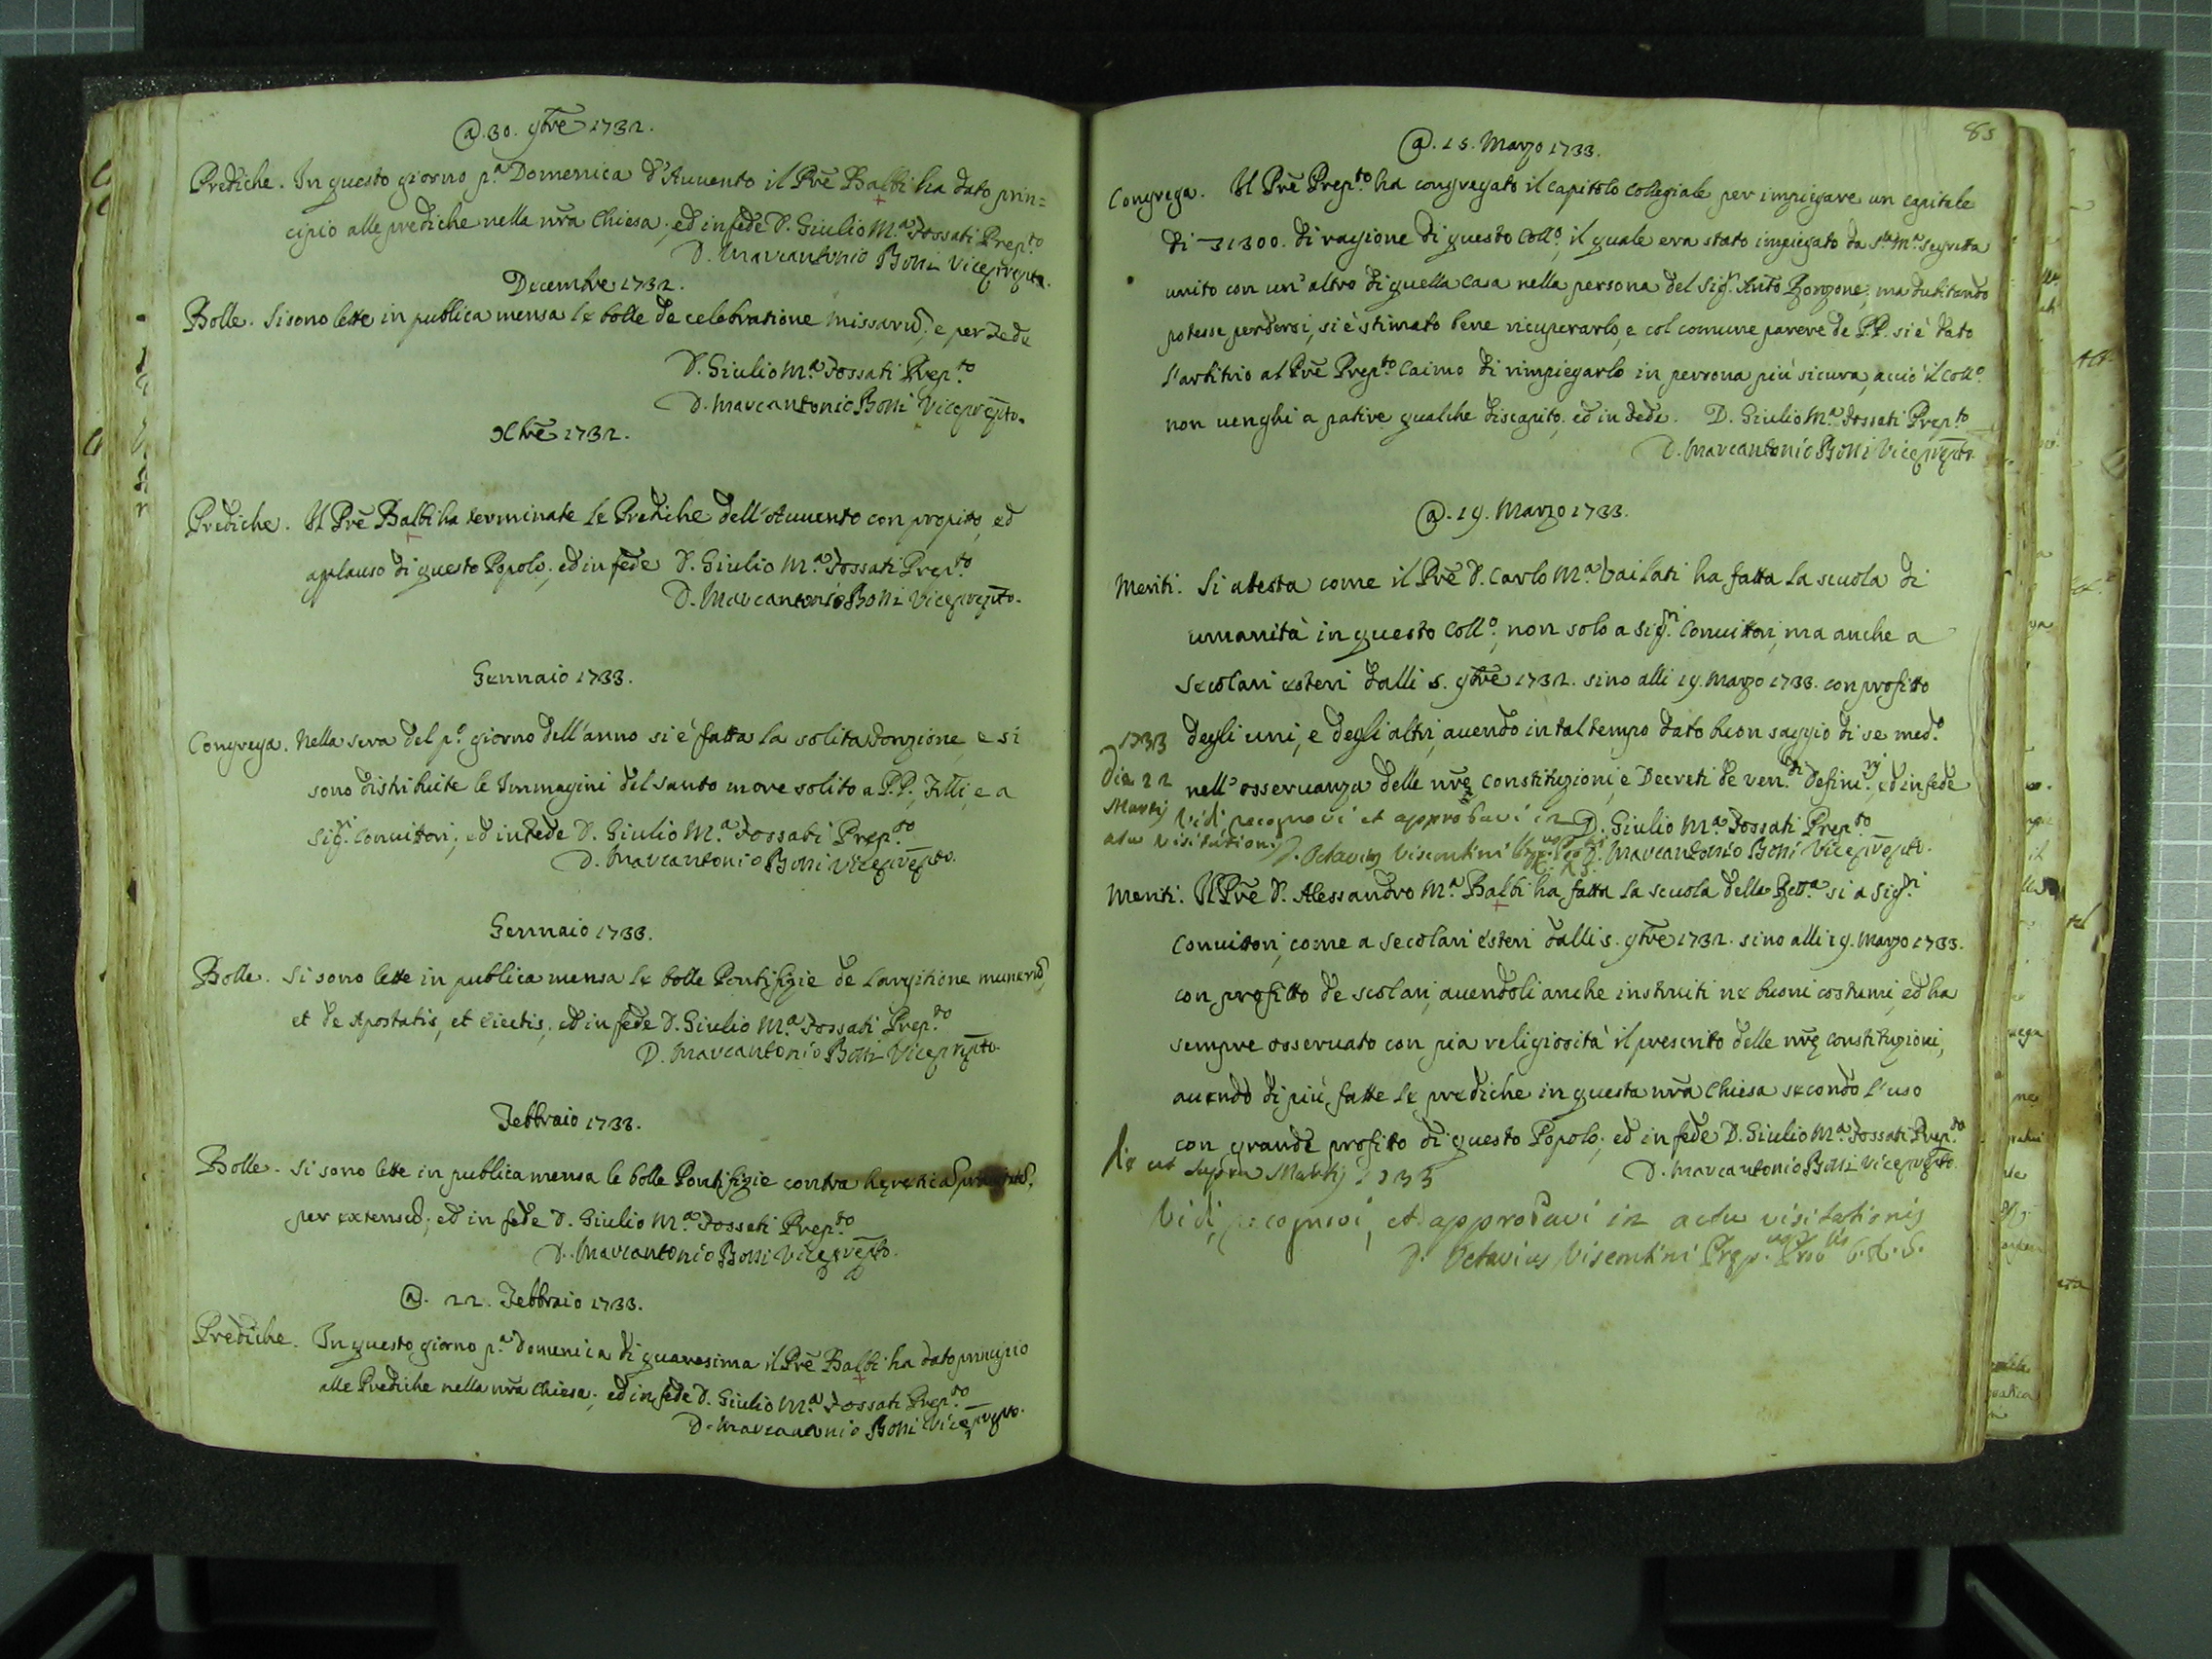 @. 30. 9bre 1732.
Prediche. In questo giorno pa. Domenica d'Auuento il Pre Balbi ha dato prin=
cipio alle prediche nella nra Chiesa; ed in fede D. Giulio Ma. Fossati Prepto
D. Marcantonio Boni Viceprepto.
Decembre 1732.
Bolle. Si sono lette in publica mensa le bolle de celebratione missarũ; e per Fede
D. Giulio Ma. Fossati Prepto
D. Marcantonio Boni Viceprepto.
Xbre 1732.
Prediche. Il Pre Balbi ha terminate le Prediche dell'Auuento con profitto, ed
applauso di questo Popolo; ed in fede D. Giulio Ma. Fossati Prepto
D. Marcantonio Boni Viceprepto.
Gennaio 1733.
Congrega. Nella sera del po. giorno dell'anno si è fatta la solita, e si
sono distribuite le Immagini del Santo more solito a P.P., Flli, e a
Sigri. Conuittori; ed in Fede D. Giulio Ma. Fossati Prepto
D. Marcantonio Boni Viceprepto.
Gennaio 1733.
Bolle. Si sono lette in publica mensa le bolle Pontifizie de largitione munerũ,
et de Apostatis, et eiectis; ed in fede D. Giulio Ma. Fossati Prepto
D. Marcantonio Boni Viceprepto.
Febbraio 1733.
Bolle. Si sono lette in publica mensa le bolle Pontifizie contra
per extensũ; ed in fede D. Giulio Ma. Fossati Prepto
D. Marcantonio Boni Viceprepto.
@. 22. Febbraio 1733.
Prediche. In questo giorno pa. domenica di quaresima il Pre Balbi ha dato principio
alle Prediche nella nra Chiesa; ed in fede D. Giulio Ma. Fossati Prepto
D. Marcantonio Boni Viceprepto.
85
@. 15. Marzo 1733.
Congrega. Il Pre Prepto ha congregato il capitolo collegiale per impiegare un capitale
di 1300. di ragione di questo Collo, il quale era stato impiegato da Sta Ma. Segreta
unito con un'altro di quella casa nella persona del Sigr. Anto Bonzone; ma dubitando
potesse perdersi, si è stimato bene ricuperarlo, e col comune parere de P.P. si è dato
l'arbitrio al Pre Prepto Caimo di rimpiegarlo in persona più sicura, acciò il Collo.
non uenghi a patire qualche discapito; ed in Fede. D. Giulio Ma. Fossati Prepto
D. Marcantonio Boni Viceprepto.
@. 19. Marzo 1733.
Meriti. Si atesta come il Pre D. Carlo Ma. Vailati ha fatta la scuola di
umanità in questo Collo, non solo a Sigri. Conuittori, ma anche a
Secolari esteri dalli 5. 9bre 1732. sino alli 19. Marzo 1733. con profitto
degli uni, e degli altri, auendo in tal tempo dato buon saggio di se medo.
nell'osseruanza delle nre Constituzioni, e Decreti de ven.di Definiri; ed in fede
1733
Die 22
Martij Vidi, recognovi et approbavi in
actu visitationis
D. Giulio Ma. Fossati Prepto
D. Octavius Viscontini
D. Marcantonio Boni Viceprepto.
Meriti. Il Pre D. Alessandro Ma. Balbi ha fatta la scuola della Retta si a Sigri
Conuittori, come a Secolari esteri dalli 5. 9bre 1732. sino alli 19. Marzo 1733.
con profitto de scolari, auendoli anche instruiti ne buoni costumi, ed ha
sempre osseruato con pia religiosità il prescrito delle nre constituzioni,
auendo di più fatte le prediche in questa nra Chiesa secondo l'uso
con grande profitto di questo Popolo; ed in fede D. Giulio Ma. Fossati Prepto
D. Marcantonio Boni Viceprepto.
Die ut supra Martij 1733
Vidi, recognovi, et approbavi in actu visitationis
D. Octavius Viscontini Prep. Prov.lis C.R.S.